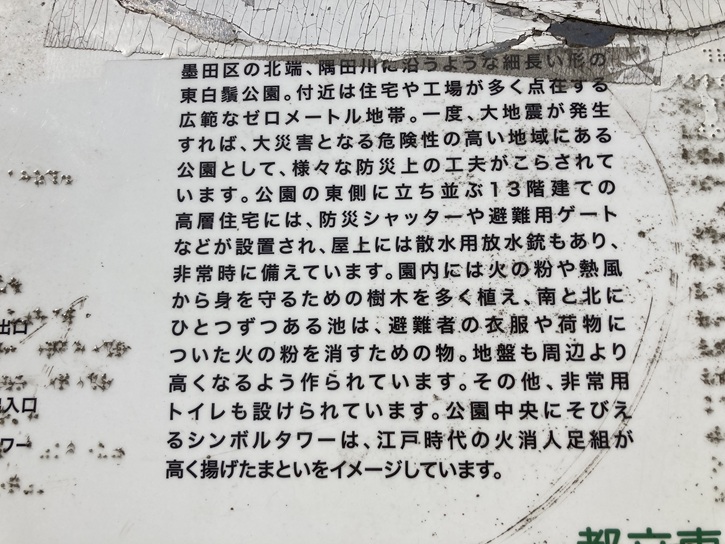 墨田区の北端、隅田川に沿うような細長い形の
東白鬚公園。付近は住宅や工場が多く点在する
広範なゼロメートル地帯。一度、大地震が発生
すれば、大災害となる危険性の高い地域にある
公園として、様々な防災上の工夫がこらされて
います。公園の東側に立ち並ぶ13階建ての
高層住宅には、防災シャッターや避難用ゲート
などが設置され、屋上には散水用放水銃もあり、
非常時に備えています。園内には火の粉や熱風
から身を守るための樹木を多く植え、南と北に
ひとつずつある池は、避難者の衣服や荷物に
ついた火の粉を消すための物。地盤も周辺より
高くなるよう作られています。その他、非常用
トイレも設けられています。公園中央にそびえ
るシンボルタワーは、江戸時代の火消人足組が
高く揚げたまといをイメージしています。
出口
入口
ワー
都立東